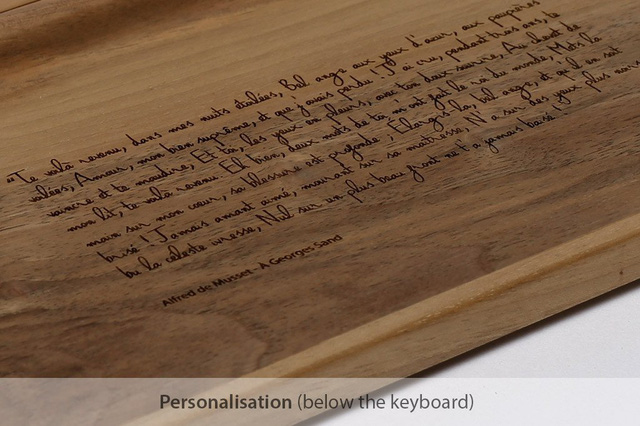 "Te voilà revenu, dans mes nuits étoilées, Bel ange aux yeux d'azur, aux paupières
voilées, Amour, mon bien suprême, et que j'avais perdu ! J'ai cru, pendant trois ans, te
vaincre et te maudire, Et toi, les yeux en pleurs, avec ton doux sourire, Au chevet de
mon lit, te voilà revenu. Eh bien, deux mots de toi m'ont fait le roi du monde, Mets la
main sur mon cœur, sa blessure est profonde ; Elargis-la, bel ange, et qu'il en soit
brisé ! Jamais amant aimé, mourant sur sa maîtresse, N'a sur des yeux plus noirs
bu la céleste ivresse, Nul sur un plus beau front ne t'a jamais baisé !"
Alfred de Musset - A Georges Sand
Personalisation (below the keyboard)